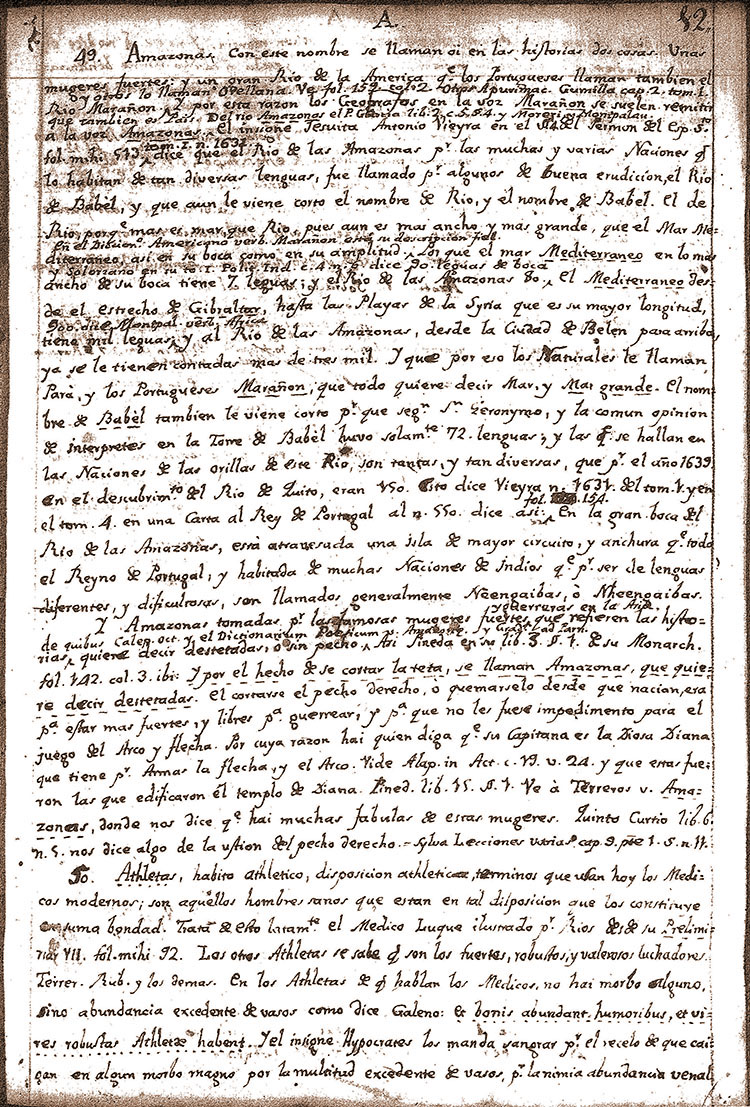 A. 82.
49. Amazonas. Con este nombre se llaman oi en las historias dos cosas. Unas
mugeres fuertes; y un gran Rio de la America q.e los Portugueses llaman tambien el
y otros lo llaman Orellana. Ve fol. 152. col. 2 otros Apurimac. Gumilla cap. 2. tom. 1.
Rio Marañon. Y por esta razon los Geografos en la voz Marañon se suelen remitir
que tambien es Pais. Del rio Amazonas el P. Garcia lib. 2. c. 5. §. 4 y Moreri y Montpalau
a la voz Amazonas. El insigne Jesuita Antonio Vieyra en el Sermon del Esp. S.to
tom. 1. n. 1631
fol. mihi 513. dice que el Rio de las Amazonas p.r las muchas y varias Naciones q̃
lo habitan de tan diversas lenguas, fue llamado p.r algunos de buena erudicion, el Rio
de Babèl, y que aun le viene corto el nombre de Rio, y el nombre de Babel. El de
Rio, porq.e mas es mar, que Rio, pues aun es mas ancho y mas grande, que el Mar Me-
En el Diccion.o Americano verb. Marañon está su descripcion fiel.
diterraneo, asi en su boca como en su amplitud, Lo que el mar Mediterraneo en lo mas
y Solorzano en su to. 1. Polit. Ind. c. 4. dice 90. leguas de boca
ancho de su boca tiene 7. leguas; y el Rio de las Amazonas 80. El Mediterraneo des-
de el estrecho de Gibraltar, hasta las Playas de la Syria que es su mayor longitud,
900. dice Montpal. verb. Africa
tiene mil leguas; y al Rio de las Amazonas, desde la Ciudad de Belen para arriba,
ya se le tienen contadas mas de tres mil. Y que por eso los Naturales le llaman
Parà, y los Portugueses Marañon, que todo quiere decir Mar, y Mar grande. El nom-
bre de Babèl tambien le viene corto p.r que seg.n S.n Geronymo, y la comun opinion
de interpretes en la Torre de Babèl huvo solam.te 72. lenguas; y las q̃ se hallan en
las Naciones de las orillas de este Rio, son tantas, y tan diversas, que p.r el año 1639
en el descubrim.to del Rio de Quito, eran 150. Esto dice Vieyra n. 1631. del tom. 1. y en
fol. 154.
el tom. 4. en una Carta al Rey de Portugal al n. 550. dice asi: En la gran boca del
Rio de las Amazonas, està atravesada una isla de mayor circuito, y anchura q.e todo
el Reyno de Portugal, y habitada de muchas Naciones de Indios q.e p.r ser de lenguas
diferentes, y dificultosas, son llamados generalmente Nèengaibas, ò Nheengaibas.
y guerreras en la Asia
Y Amazonas tomadas p.r las famosas mugeres fuertes que refieren las histo-
de quibus Calep. oct. y el Dictionarium Poeticum v. Amazones y Grad. ad Parn.
rias, quiere decir destetadas, o sin pecho. Asi Pineda en su lib. 3. §. 1. de su Monarch.
fol. 142. col. 3. ibi: Y por el hecho de se cortar la teta, se llaman Amazonas, que quie-
re decir destetadas. El cortarse el pecho derecho, o quemarselo desde que nacian, era
p.a estar mas fuertes, y libres p.a guerrear, y p.a que no les fuese impedimento para el
juego del Arco y flecha. Por cuya razon hai quien diga q.e su Capitana es la Diosa Diana
que tiene p.r Armas la flecha, y el Arco. Vide Alap. in Act. c. 19. v. 24. y que estas fue-
ron las que edificaron el templo de Diana. Pined. lib. 15. §. 1. Ve à Terreros v. Ama-
zonas, donde nos dice q.e hai muchas fabulas de estas mugeres. Quinto Curtio lib. 6.
n. 5. nos dice algo de la ustion del pecho derecho. - Sylva Lecciones varias cap. 9. pte 1. 5. n. 11.
50. Athletas, habito athletico, disposicion athletica, terminos que usan hoy los Medi-
cos modernos; son aquellos hombres sanos que estan en tal disposicion que los constituye
en suma bondad. Trata de esto latam.te el Medico Luque ilustrado p.r Rios desde su Prelimi-
nar VII. fol. mihi 92. Los otros Athletas se sabe q̃ son los fuertes, robustos, y valerosos luchadores.
Terrer. Rub. y los demas. En los Athletas de q̃ hablan los Medicos, no hai morbo alguno,
sino abundancia excedente de vasos como dice Galeno: Ex bonis abundant humoribus, et vi-
res robustas Athletæ habent. Y el insigne Hypocrates los manda sangrar p.r el recelo de que cai-
gan en algun morbo magno por la multitud excedente de vasos, p.r la nimia abundancia venal